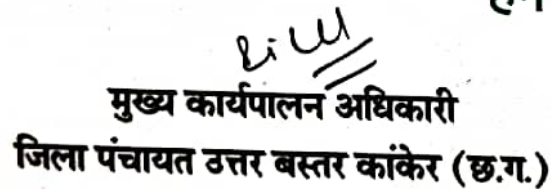 मुख्य कार्यपालन अधिकारी
जिला पंचायत उत्तर बस्तर कांकेर (छ.ग.)